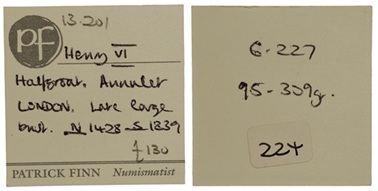 13.201
pf
Henry VI
Halfgroat. Annulet
LONDON. Late large
bust. N1428 S1839
£130
PATRICK FINN Numismatist
G.227
95-309g.
224